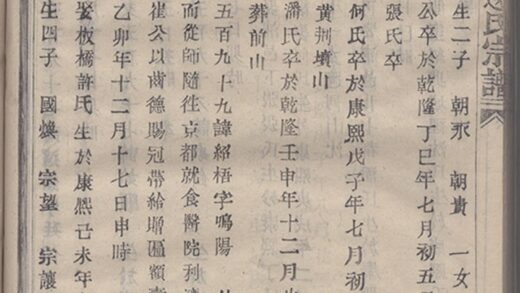 氏宗譜
生二子 朝永 朝貴 一女
公卒於乾隆丁巳年七月初五
張氏卒
何氏卒於康熙戊子年七月初
黄荆墳山
潘氏卒於乾隆壬申年十二月
葬前山
五百九十九諱紹梧字鳴陽
而從師隨徃京都就食醫院列
崔公以齒德賜冠帶給贈匾額
乙卯年十二月十七日申時
娶板橋許氏生於康熙己未年
生四子 國煥 宗望 宗讓